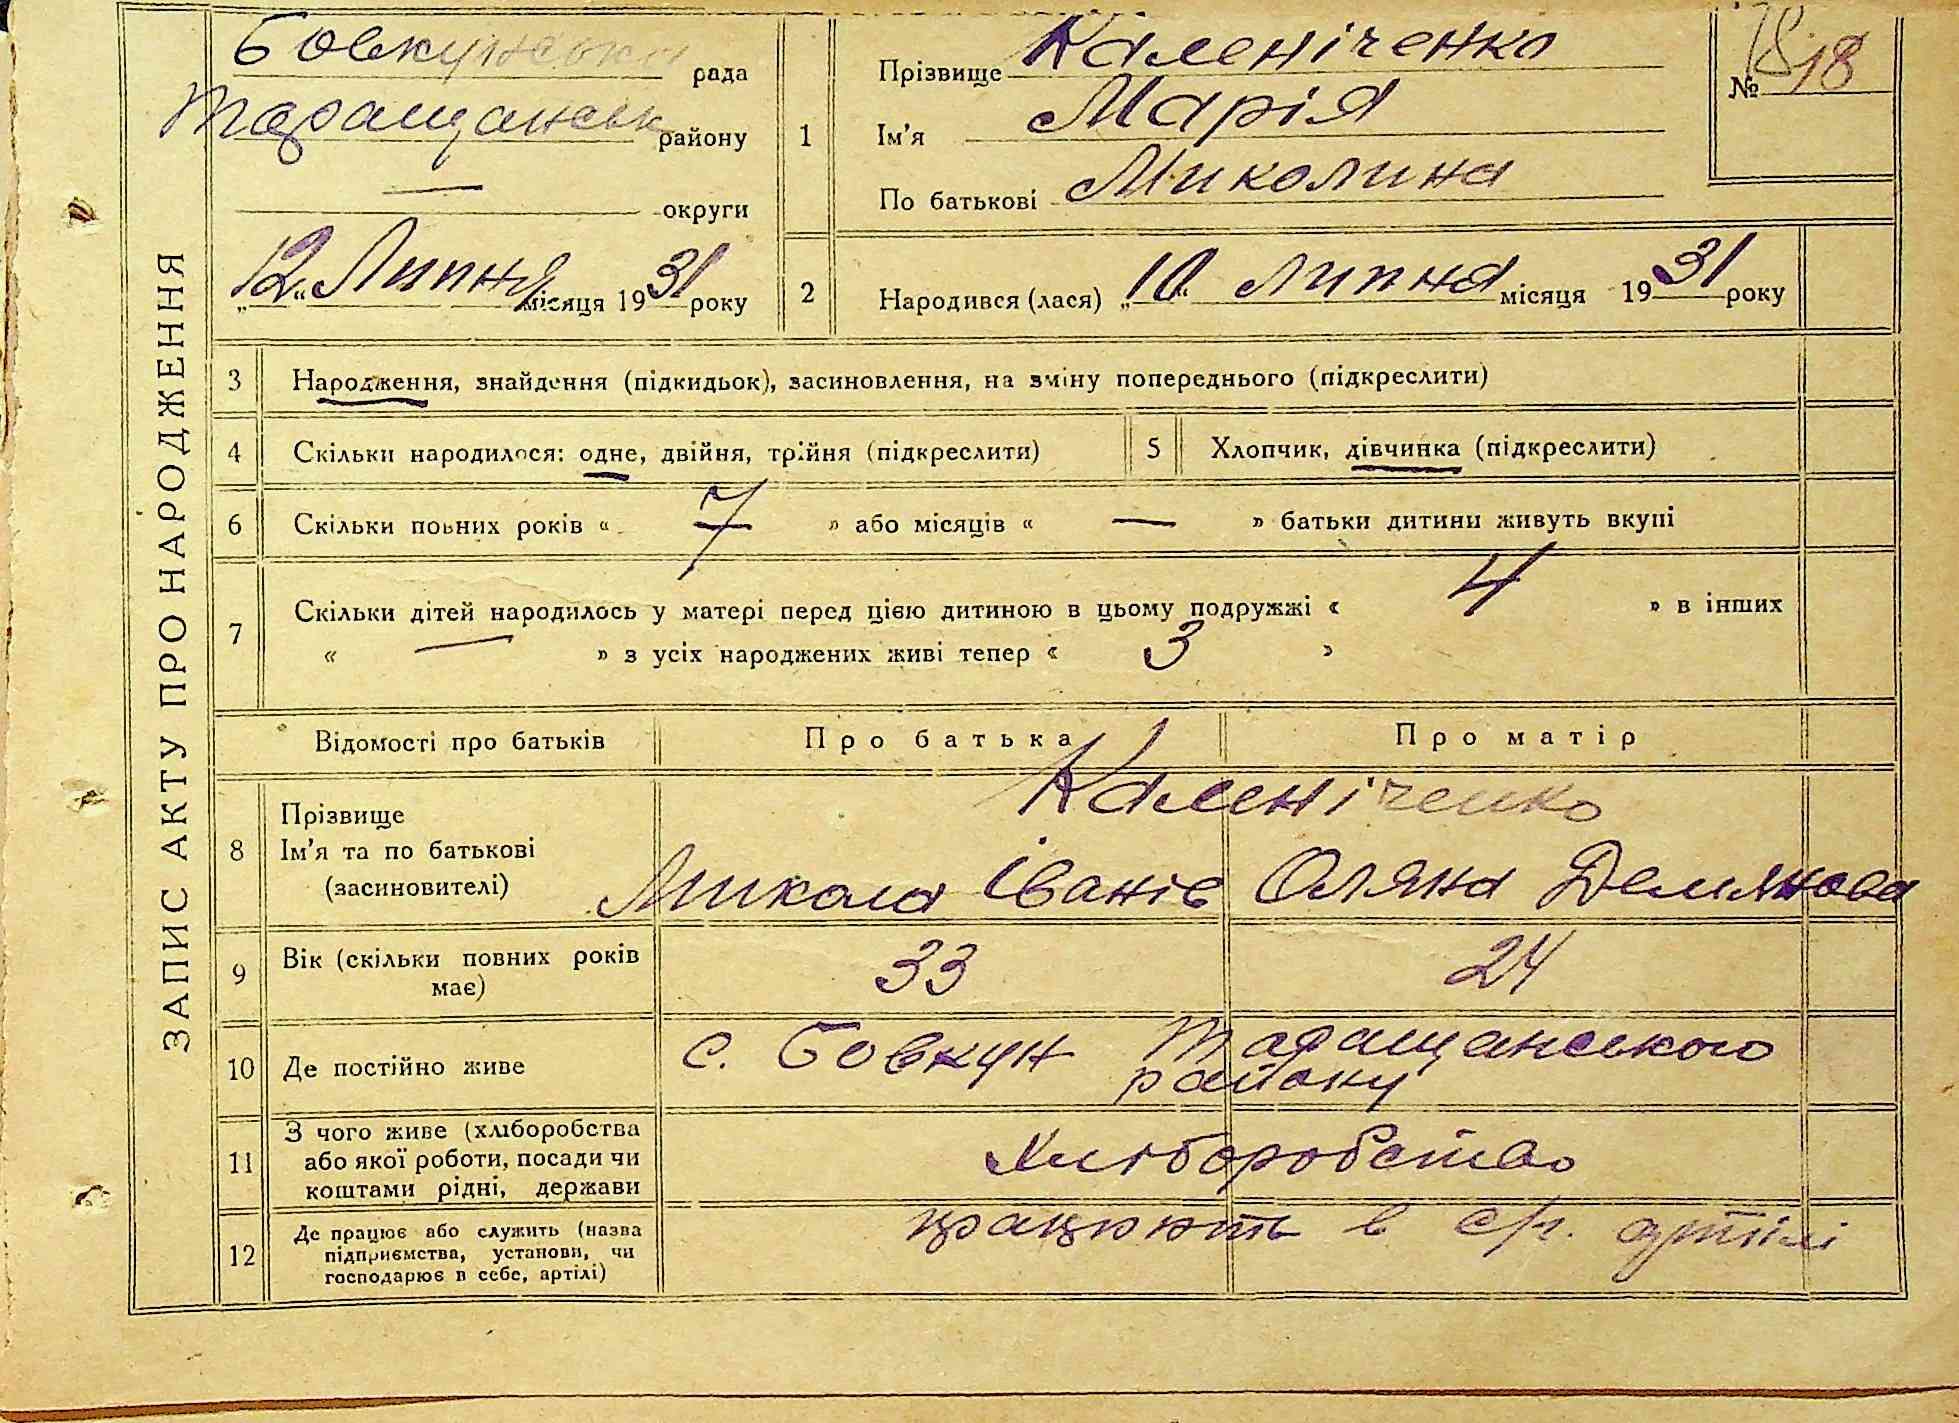 ЗАПИС АКТУ ПРО НАРОДЖЕННЯ
Бовкунська рада
Таращанськ району
— округи
„12“ Липня місяця 1931 року
1
Прізвище Каленіченко
Ім'я Марія
По батькові Миколина
№ 18
2 Народився (лася) „10“ липня місяця 1931 року
3 Народження, знайдення (підкидьок), засиновлення, на зміну попереднього (підкреслити)
4 Скільки народилося: одне, двійня, трійня (підкреслити) 5 Хлопчик, дівчинка (підкреслити)
6 Скільки повних років « 7 » або місяців « — » батьки дитини живуть вкупі
7 Скільки дітей народилось у матері перед цією дитиною в цьому подружжі « 4 » в інших
« — » з усіх народжених живі тепер « 3 »
Відомості про батьків Про батька Про матір
8 Прізвище Каленіченко
Ім'я та по батькові
(засиновителі) Микола Іванів Оляна Демянова
9 Вік (скільки повних років
має) 33 24
10 Де постійно живе с. Бовкун Таращанського
району
11 З чого живе (хліборобства
або якої роботи, посади чи
коштами рідні, держави Хліборобство
12 Де працює або служить (назва
підприємства, установи, чи
господарює в себе, артілі) працюють в с/г. артілі